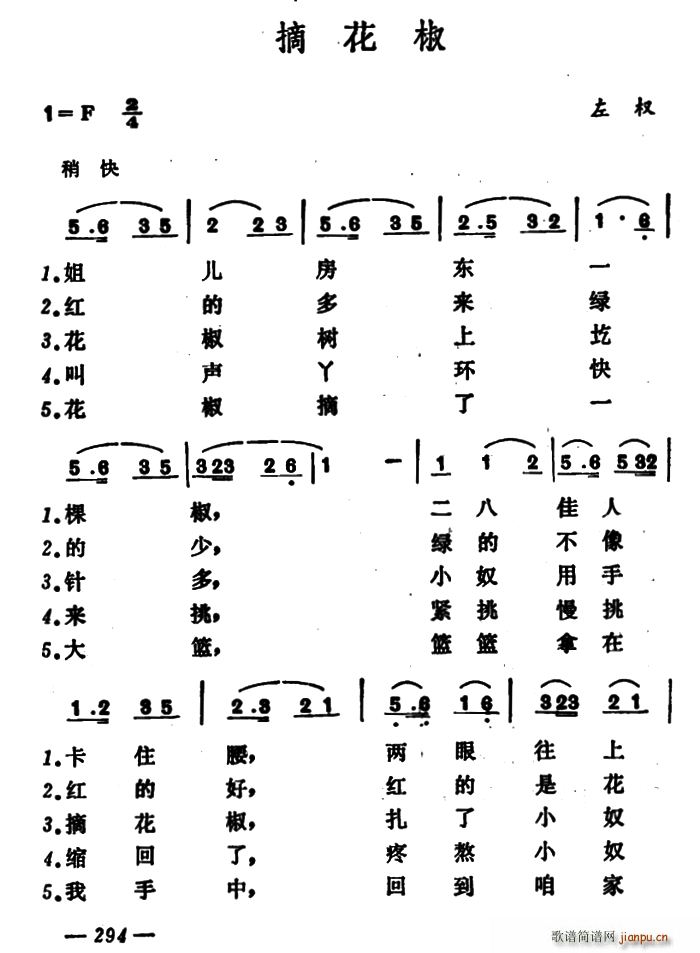 摘花椒
1=F 2/4 左权
稍快
5.6 35 | 2 23 | 5.6 35 | 2.5 32 | 1· 6
1.姐儿房东一
2.红的多来绿
3.花椒树上圪
4.叫声丫环快
5.花椒摘了一
5.6 35 | 323 26 | 1 – | 1 1 2 | 5.6 532
1.棵椒，二八佳人
2.的少，绿的不像
3.针多，小奴用手
4.来挑，紧挑慢挑
5.大篮，篮篮拿在
1.2 35 | 2.3 21 | 5.6 16 | 323 21
1.卡住腰，两眼往上
2.红的好，红的是花
3.摘花椒，扎了小奴
4.缩回了，疼熬小奴
5.我手中，回到咱家
— 294 —
歌谱简谱网 jianpu.cn